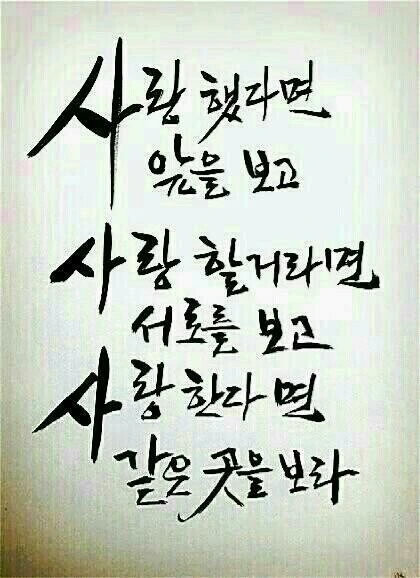 사랑 했다면
앞을 보고
사랑 할거라면
서로를 보고
사랑 한다면
같은 곳을 보라